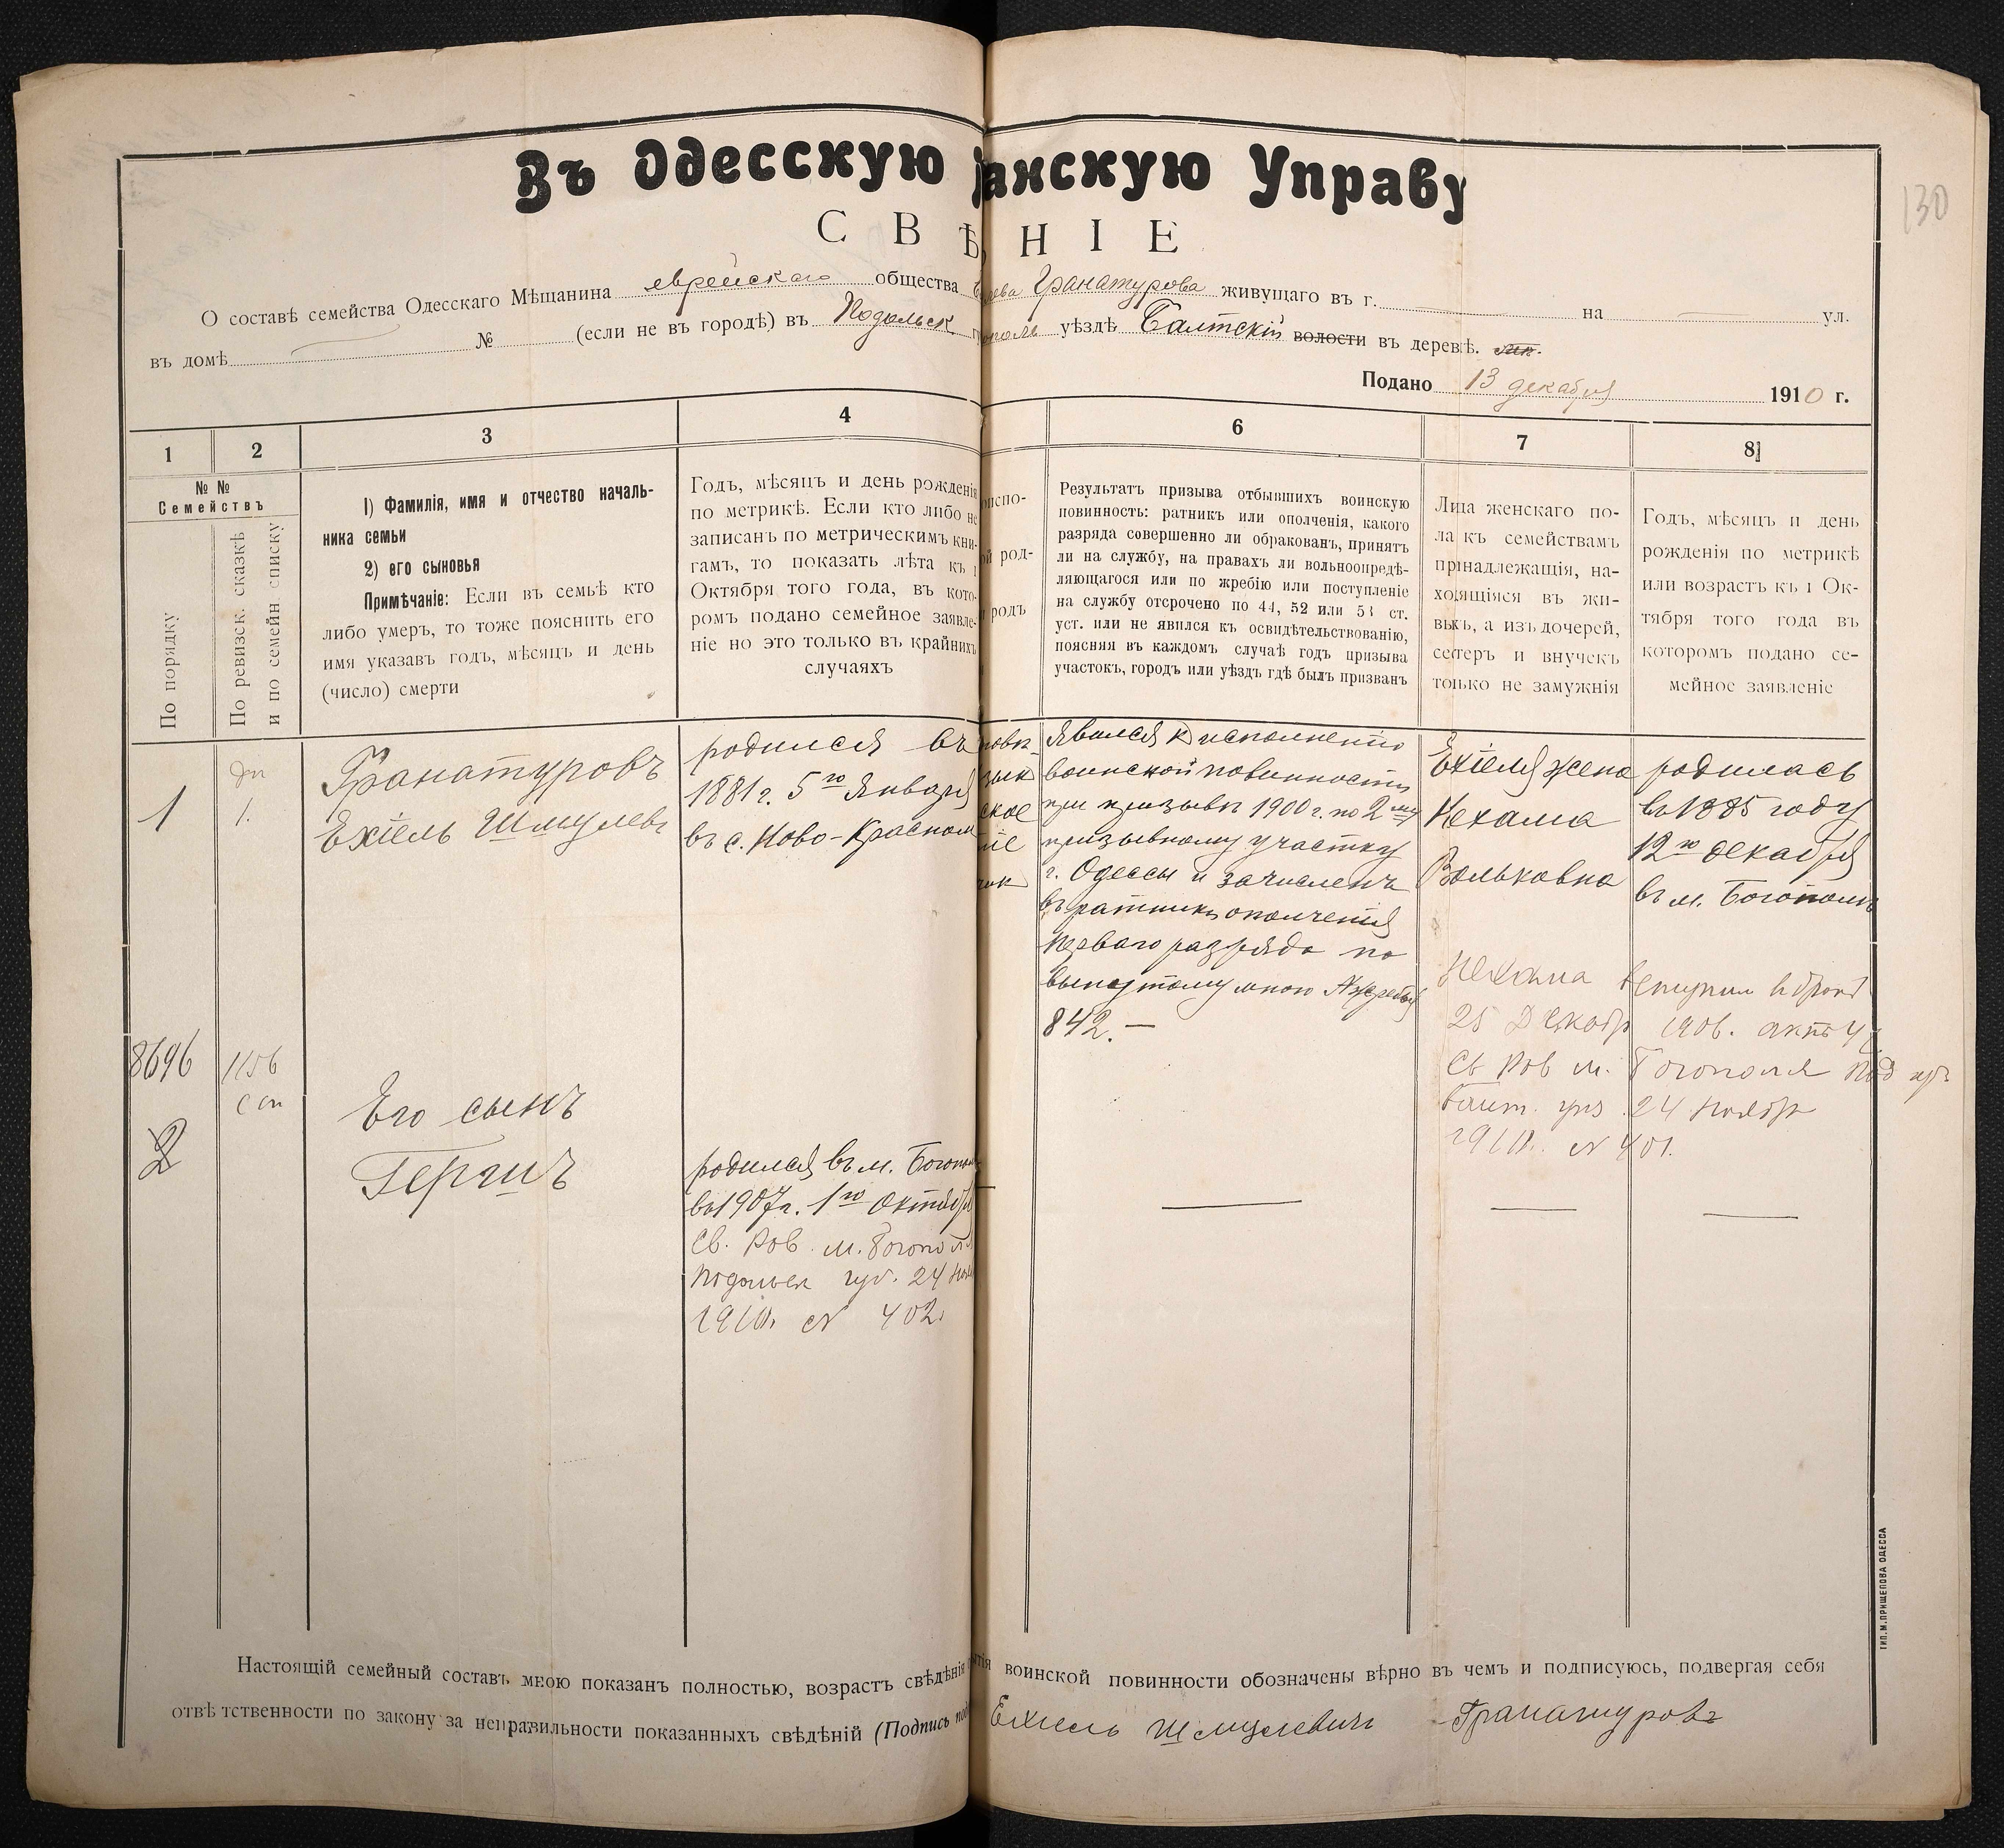 130
Въ Одесскую анскую Управу
СВѢНІЕ
О составѣ семейства Одесскаго Мѣщанина еврейскаго общества Гранатурова живущаго въ г. на ул.
въ домѣ № (если не въ городѣ) въ Подольск уѣздѣ Балтскій волости въ деревѣ.
Подано 13 декабря 1910 г.
1
2
3
4
6
7
8
№ №
Семействъ
По порядку
По ревизск. сказкѣ
и по семейн списку
1) Фамилія, имя и отчество началь-
ника семьи
2) его сыновья
Примѣчаніе: Если въ семьѣ кто
либо умеръ, то тоже пояснить его
имя указавъ годъ, мѣсяцъ и день
(число) смерти
Годъ, мѣсяцъ и день рожденія
по метрикѣ. Если кто либо не
записанъ по метрическимъ кни-
гамъ, то показать лѣта къ 1
Октября того года, въ кото-
ромъ подано семейное заявле-
ніе но это только въ крайнихъ
случаяхъ
испо-
ой род-
родъ
Результатъ призыва отбывшихъ воинскую
повинность: ратникъ или ополченія, какого
разряда совершенно ли обракованъ, принятъ
ли на службу, на правахъ ли вольноопредѣ-
ляющагося или по жребію или поступленіе
на службу отсрочено по 44, 52 или 53 ст.
уст. или не явился къ освидѣтельствованію,
поясняя въ каждомъ случаѣ годъ призыва
участокъ, городъ или уѣздъ гдѣ былъ призванъ
Лица женскаго по-
ла къ семействамъ
принадлежащія, на-
ходящіяся въ жи-
выхъ, а изъ дочерей,
сестеръ и внучекъ
только не замужнія
Годъ, мѣсяцъ и день
рожденія по метрикѣ
или возрастъ къ 1 Ок-
тября того года въ
которомъ подано се-
мейное заявленіе
1
1.
Гранатуровъ
Ехіель Шмулевъ
родился въ
1881 г. 5го Января
въ с. Ново-Красном
ское
ніе
явился к исполненію
воинской повинности
при призывѣ 1900 г. по 2му
призывному участку
г. Одессы и зачисленъ
въ ратники ополченія
перваго разряда по
вынутому мною Жребью
842. —
Ехіеля жена
Нехама
Вольковна
родилась
въ 1885 году
12го декабря
въ м. Богополѣ
Нехама вступил въ брак
25 Декабр 1906. актъ
Св Рав м. Богополя Под губ
Балт. уѣз. 24 Ноябр
1910. № 401.
8696
1156
2
Его сынъ
Гершъ
родился въ м. Богопол
въ 1907 г. 1го Октября
Св. Рав. м. Богополя
Подольск губ. 24 Ноя
1910. № 402.
Настоящій семейный составъ мною показанъ полностью, возрастъ свѣдѣнія тія воинской повинности обозначены вѣрно въ чемъ и подписуюсь, подвергая себя
отвѣтственности по закону за неправильности показанныхъ свѣдѣній (Подпись Ехиель Шмулевич Гранатуровъ
ТИП. М. ПРИЩЕПОВА ОДЕССА